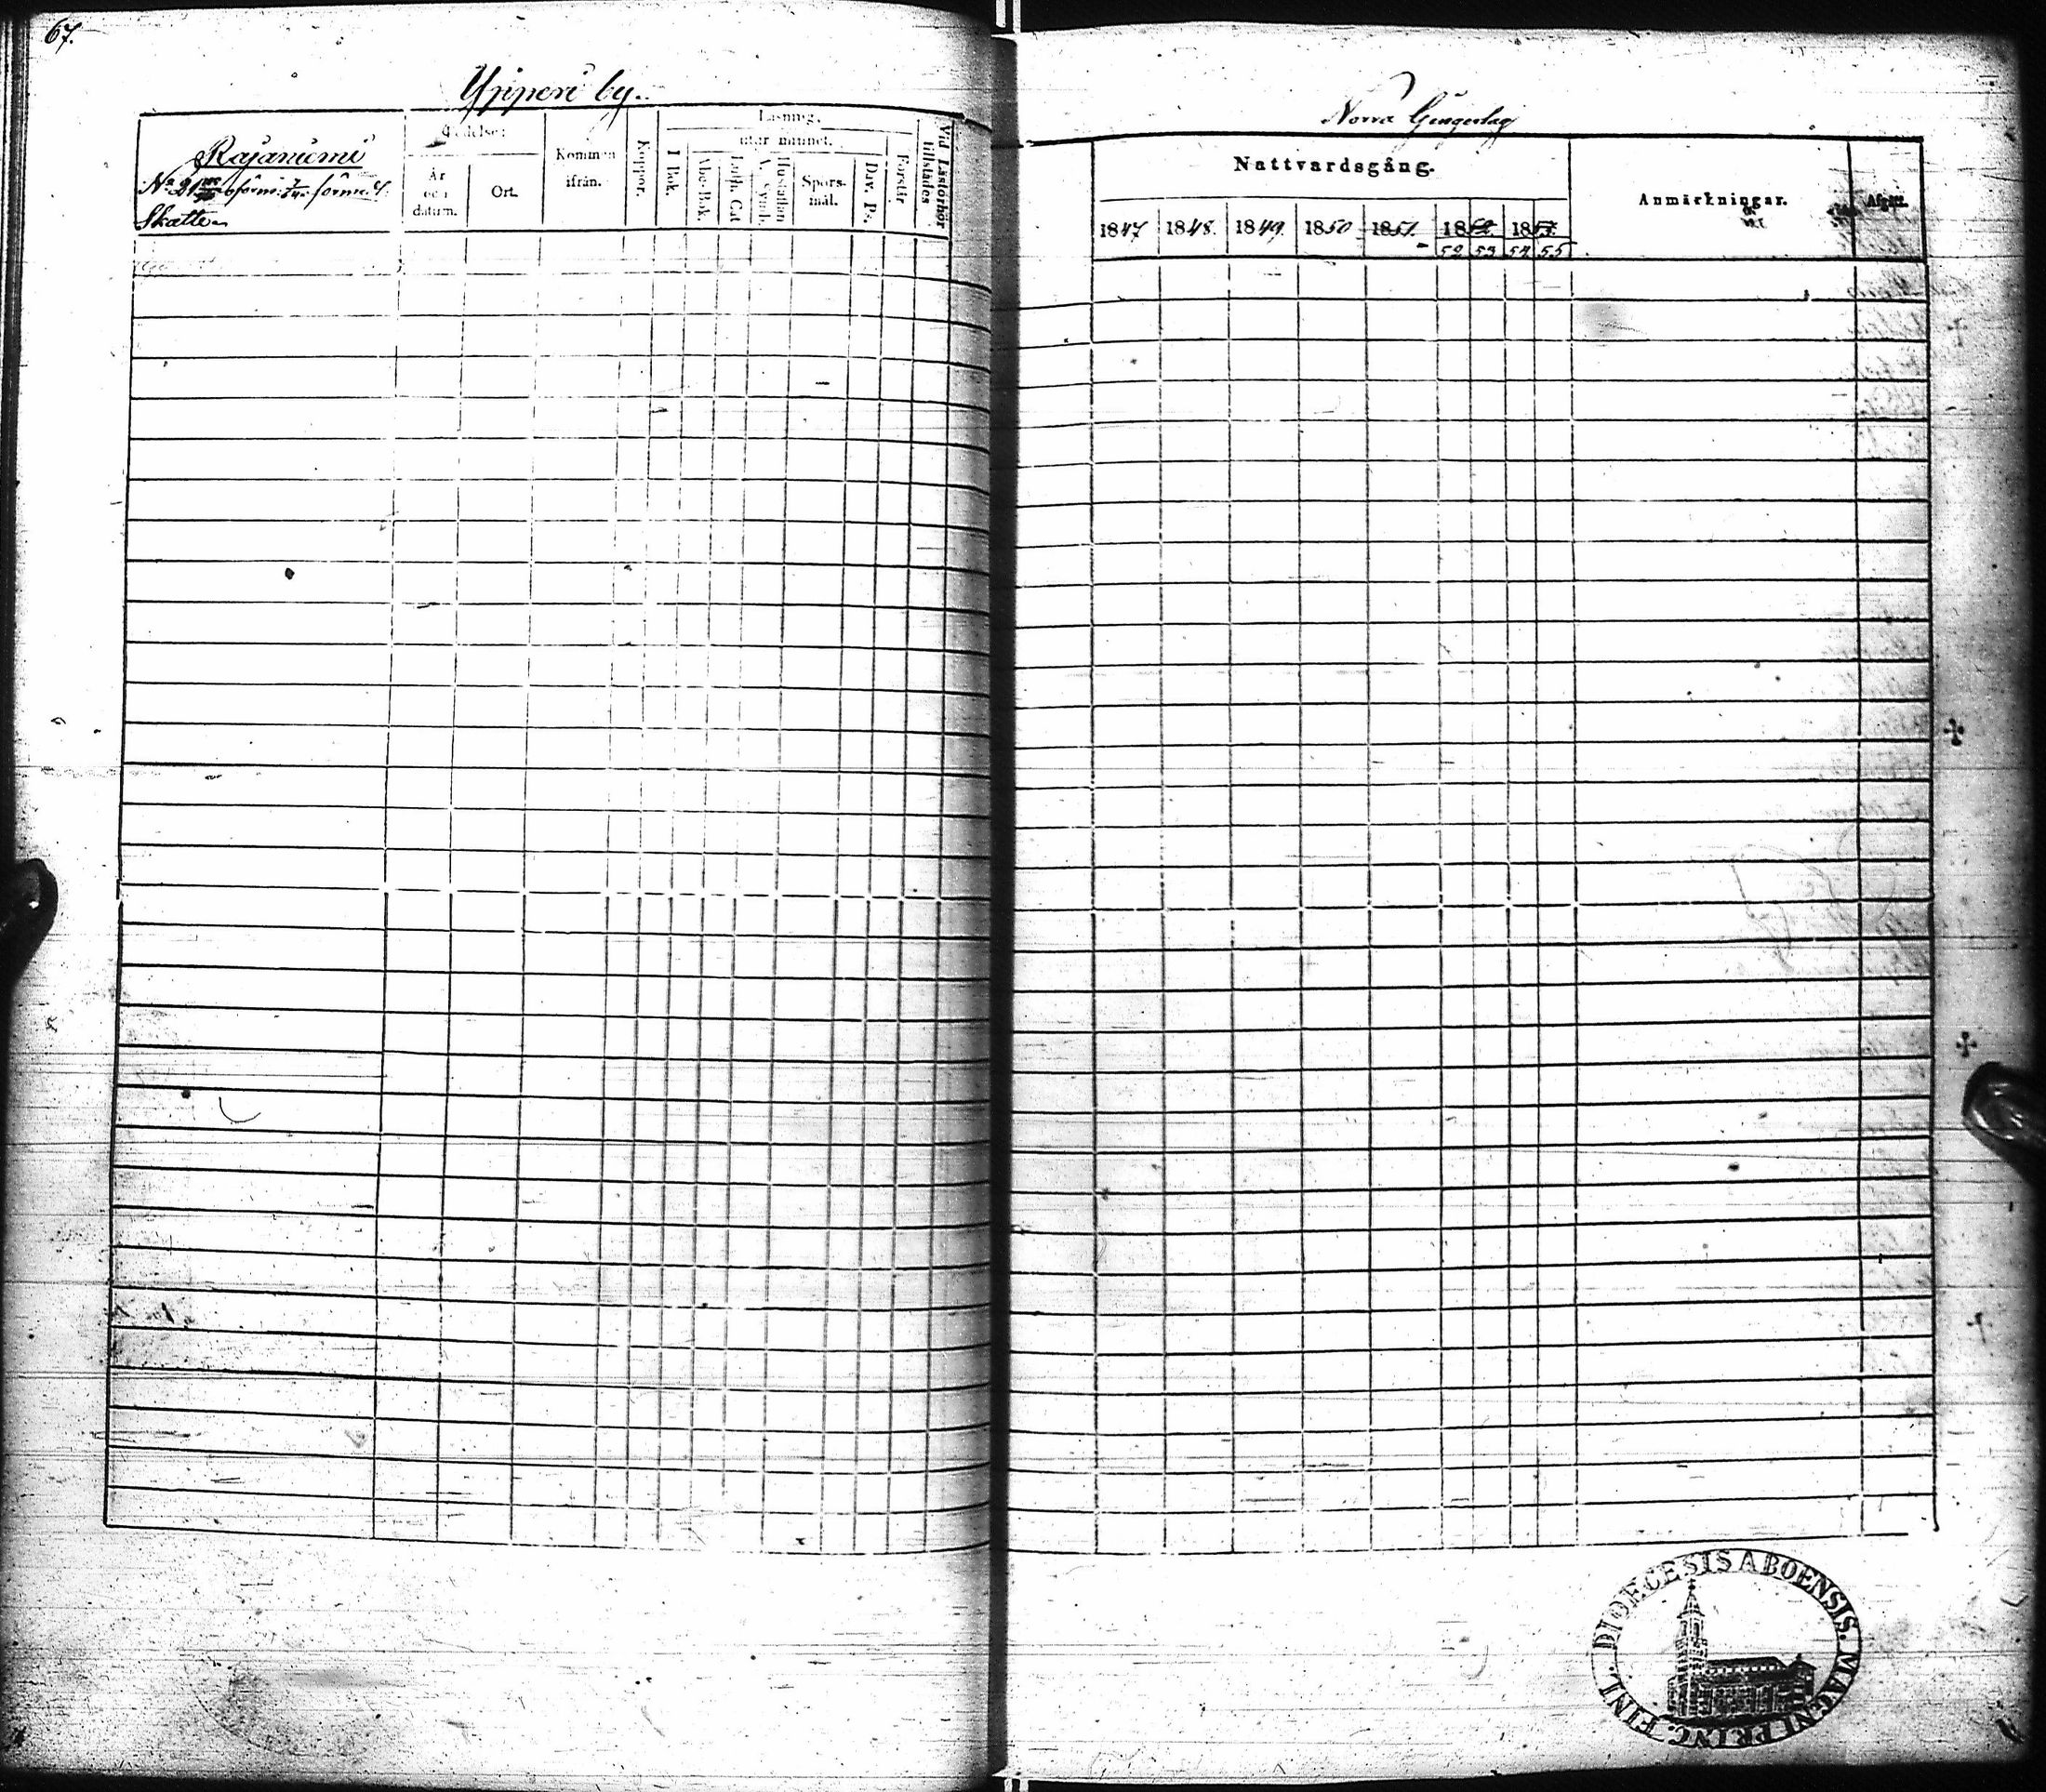 67.
Ypiperi by.
Rajaniemi
No 21
Skatte
Födelse:
År och datum.
Ort.
Kommen ifrån.
Koppor.
Läsning.
utur minnet.
I Bok.
Abc-Bok.
Luth. Cat
A. Symb.
Hustaflan
Spörs-mål.
Dav. Ps.
Förstår.
Vid Läsförhör tillstädes
Norra
Nattvardsgång.
1847
1848.
1849.
1850
1851.
1852
1853.
52
53
54
55
Anmärkningar.
Afgått.
DIOECESIS ABOENSIS. MAGNI PRINC. FINL.